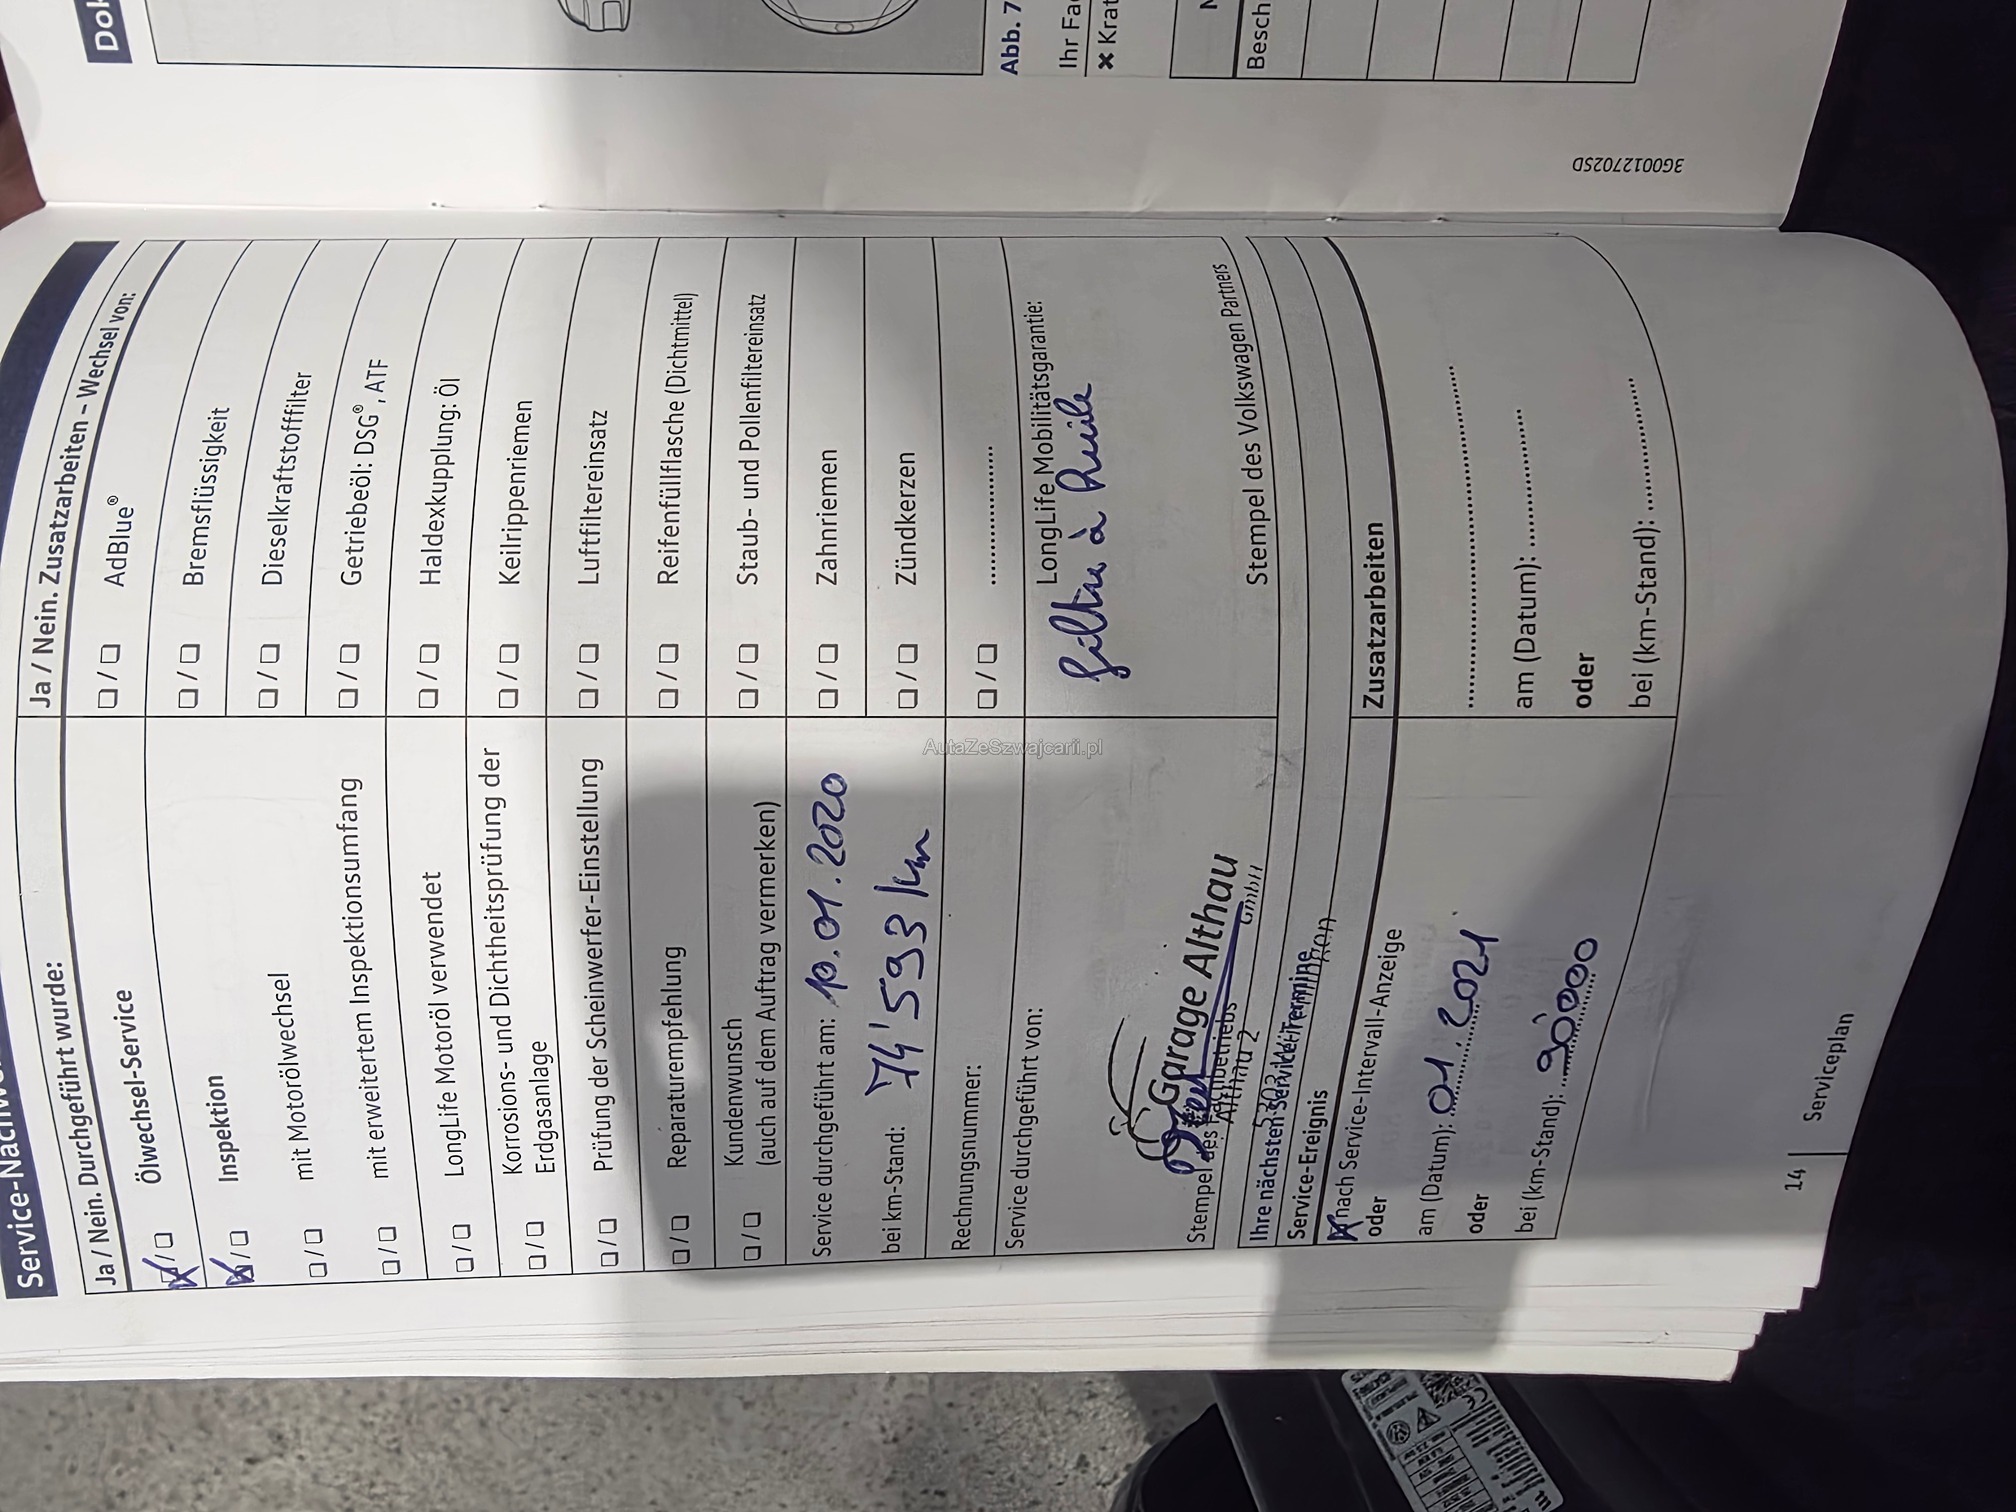 Service-Nachw
Ja / Nein. Durchgeführt wurde:
☒ / ☐ Ölwechsel-Service
☒ / ☐ Inspektion
☐ / ☐ mit Motorölwechsel
☐ / ☐ mit erweitertem Inspektionsumfang
☐ / ☐ LongLife Motoröl verwendet
☐ / ☐ Korrosions- und Dichtheitsprüfung der
Erdgasanlage
☐ / ☐ Prüfung der Scheinwerfer-Einstellung
☐ / ☐ Reparaturempfehlung
☐ / ☐ Kundenwunsch
(auch auf dem Auftrag vermerken)
Service durchgeführt am: 10.01.2020
bei km-Stand: 74'593 km
Rechnungsnummer:
Service durchgeführt von:
Garage Althau
GmbH
Althau 2
Stempel des Fachbetriebs
Ja / Nein. Zusatzarbeiten – Wechsel von:
☐ / ☐ AdBlue®
☐ / ☐ Bremsflüssigkeit
☐ / ☐ Dieselkraftstofffilter
☐ / ☐ Getriebeöl: DSG®, ATF
☐ / ☐ Haldexkupplung: Öl
☐ / ☐ Keilrippenriemen
☐ / ☐ Luftfiltereinsatz
☐ / ☐ Reifenfüllflasche (Dichtmittel)
☐ / ☐ Staub- und Pollenfiltereinsatz
☐ / ☐ Zahnriemen
☐ / ☐ Zündkerzen
☐ / ☐ ....................
LongLife Mobilitätsgarantie:
filtre à huile
Stempel des Volkswagen Partners
Ihre nächsten Service-Termine
Service-Ereignis
☒ nach Service-Intervall-Anzeige
oder
am (Datum): 01.2021
oder
bei (km-Stand): 90'000
Zusatzarbeiten
am (Datum): ....................
oder
bei (km-Stand): ....................
14 | Serviceplan
Dok
Abb. 7
Ihr Fac
✖ Krat
Besch
3G0012702SD
AutaZeSzwajcarii.pl